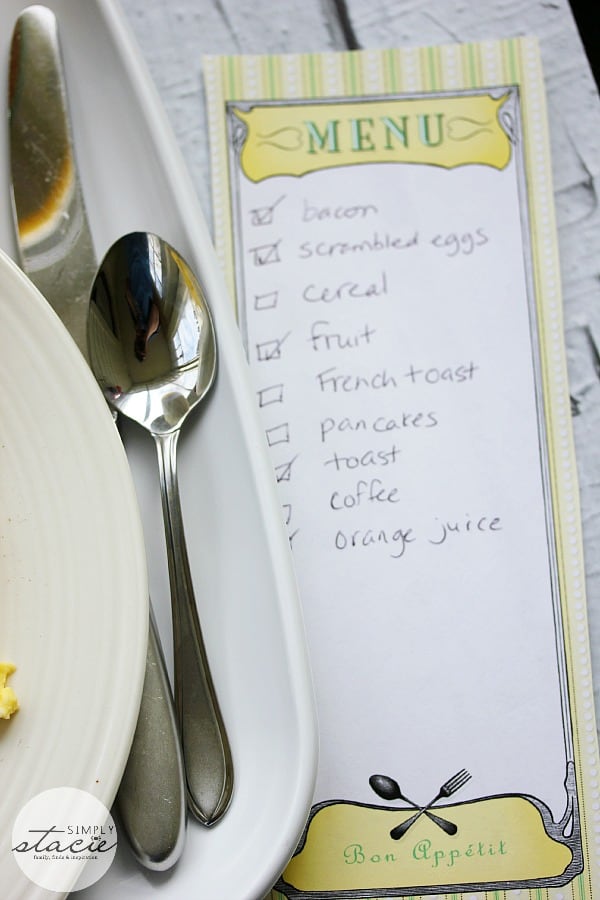 MENU
bacon
scrambled eggs
cereal
fruit
French toast
pancakes
toast
coffee
orange juice
Bon Appétit
SIMPLY
stacie
family, finds & inspiration